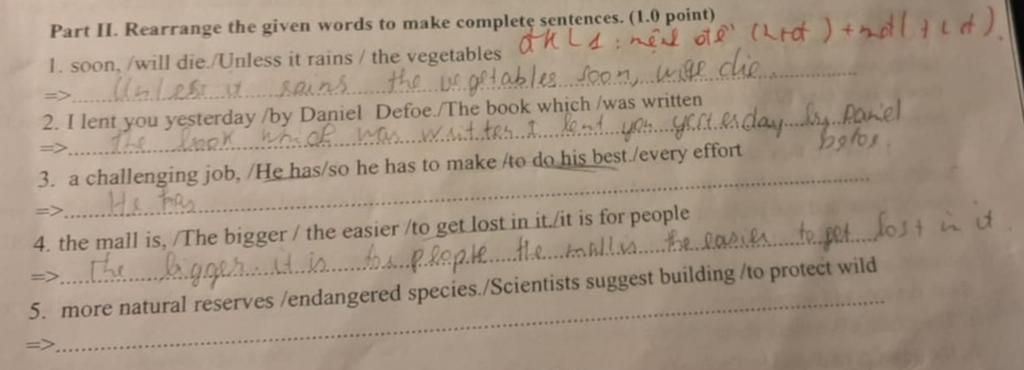 Part II. Rearrange the given words to make complete sentences. (1.0 point)
1. soon, /will die./Unless it rains / the vegetables
=> Unless it rains the vegetables soon, will die
2. I lent you yesterday /by Daniel Defoe./The book which /was written
=> The book which was written I lent you yesterday by Daniel
3. a challenging job, /He has/so he has to make /to do his best./every effort
=> He has
4. the mall is, /The bigger / the easier /to get lost in it./it is for people
=> The bigger it is for people the mall is the easier to get lost in it
5. more natural reserves /endangered species./Scientists suggest building /to protect wild
=>